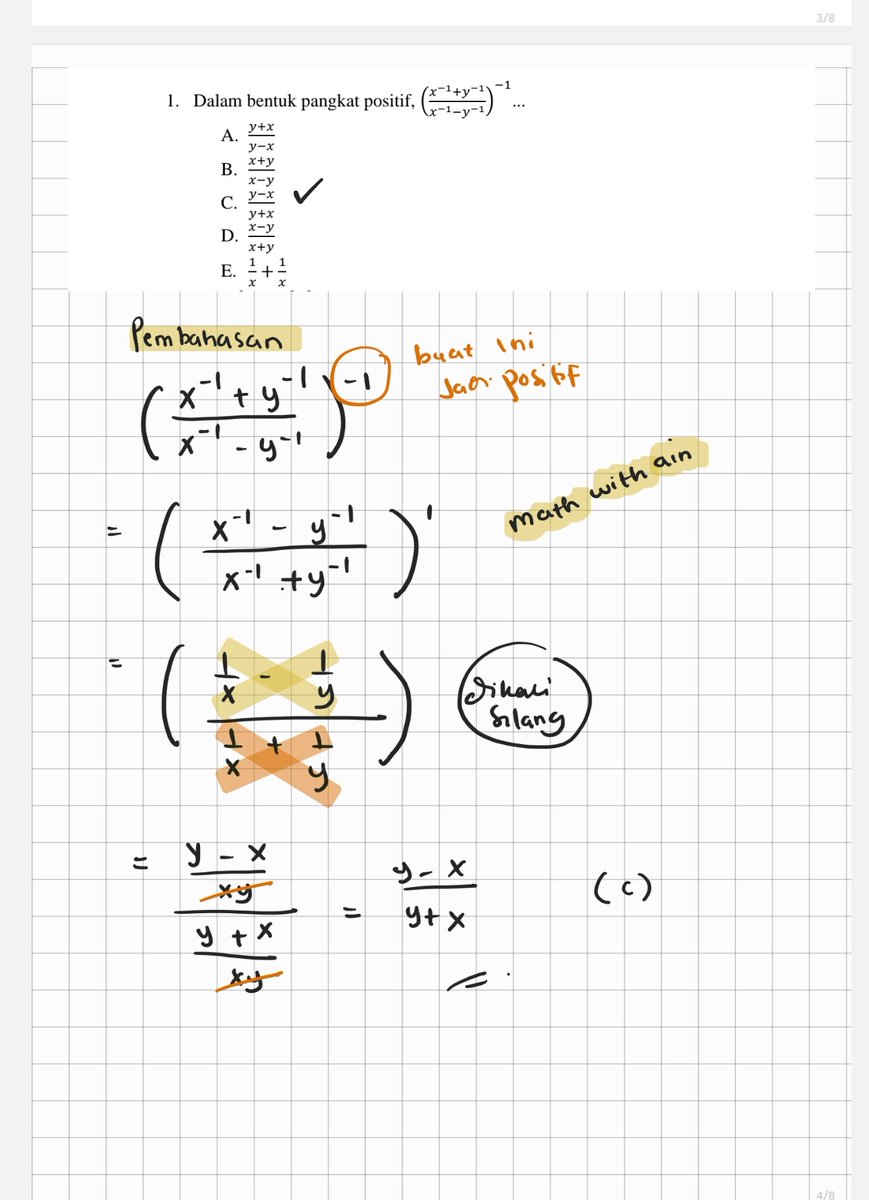 3/8
1. Dalam bentuk pangkat positif, ((x⁻¹+y⁻¹)/(x⁻¹−y⁻¹))⁻¹...
A. (y+x)/(y−x)
B. (x+y)/(x−y)
C. (y−x)/(y+x) ✓
D. (x−y)/(x+y)
E. 1/x + 1/x
Pembahasan
((x⁻¹ + y⁻¹)/(x⁻¹ - y⁻¹))⁻¹
buat ini
Jadi positif
= ((x⁻¹ - y⁻¹)/(x⁻¹ + y⁻¹))¹
math with ain
= ((1/x - 1/y)/(1/x + 1/y))
dikali
silang
= ((y - x)/xy)/((y + x)/xy) = (y - x)/(y + x) (c)
4/8